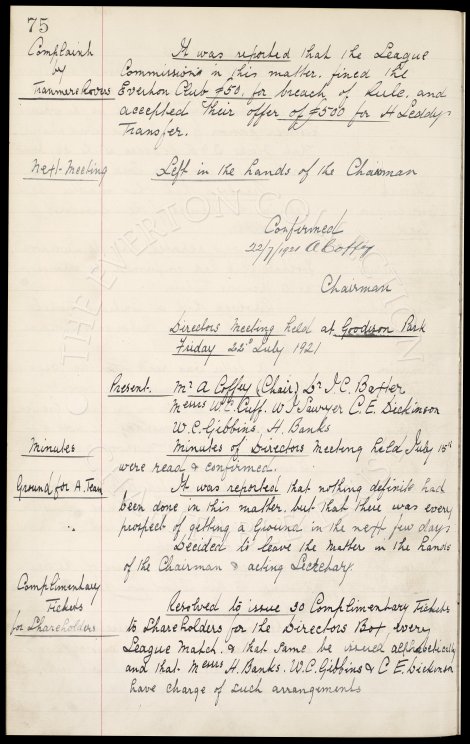 75
Complaint
by
Tranmere Rovers
It was reported that the League
Commissions in this matter, fined the
Everton Club £50, for breach of Rule, and
accepted their offer of £500 for H Leddys
Transfer.
Next Meeting
Left in the hands of the Chairman
Confirmed
22/7/1921 A Coffey
Chairman
Directors Meeting held at Goodison Park
Friday 22nd July 1921
Present. Mr A Coffey (Chair) Dr J.C. Baxter
Messrs W.C. Cuff. W J Sawyer C.E. Dickinson
W.C. Gibbins, H. Banks
Minutes
Minutes of Directors Meeting held July 15th
were read & confirmed.
Ground for A. Team
It was reported that nothing definite had
been done in this matter, but that there was every
prospect of getting a Ground in the next few days
Decided to leave the matter in the hands
of the Chairman & acting Secretary.
Complimentary
Tickets
for Shareholders
Resolved to issue 30 Complimentary Tickets
to Shareholders for the Directors Box, every
League Match, & that same be issued alphabetically
and that Messrs H. Banks. W.C. Gibbins & C E. Dickinson
have charge of such arrangements
THE EVERTON COLLECTION